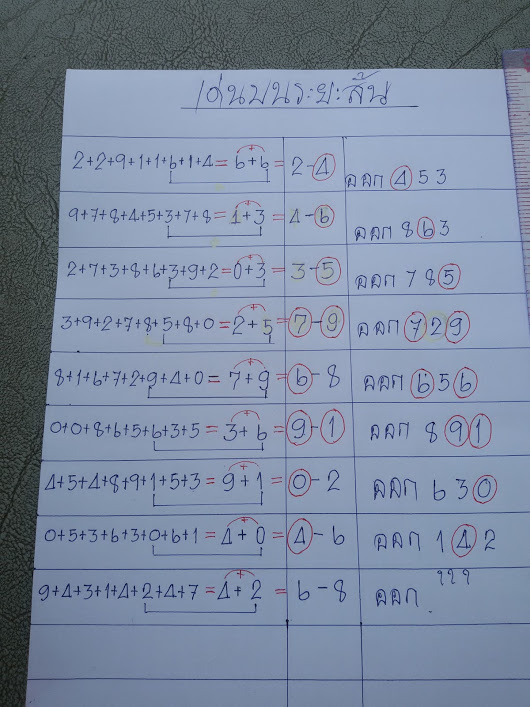 เด่นบนระยะสั้น
2+2+9+1+1+6+1+4 = 6+6 = 2-4 ออก 4 5 3
9+7+8+4+5+3+7+8 = 1+3 = 4-6 ออก 8 6 3
2+7+3+8+6+3+9+2 = 0+3 = 3-5 ออก 7 8 5
3+9+2+7+8+5+8+0 = 2+5 = 7-9 ออก 7 2 9
8+1+6+7+2+9+4+0 = 7+9 = 6-8 ออก 6 5 6
0+0+8+6+5+6+3+5 = 3+6 = 9-1 ออก 8 9 1
4+5+4+8+9+1+5+3 = 9+1 = 0-2 ออก 6 3 0
0+5+3+6+3+0+6+1 = 4+0 = 4-6 ออก 1 4 2
9+4+3+1+4+2+4+7 = 4+2 = 6-8 ออก ???